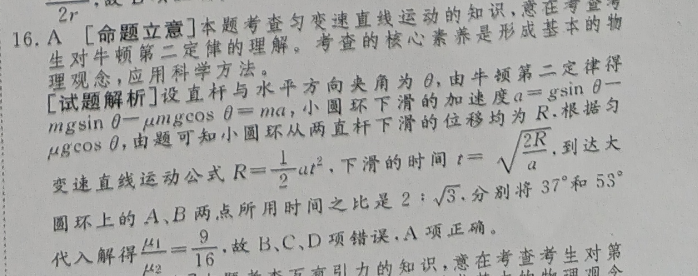 2r
16. A [命题立意]本题考查匀变速直线运动的知识,意在考查考
生对牛顿第二定律的理解。考查的核心素养是形成基本的物
理观念,应用科学方法。
[试题解析]设直杆与水平方向夹角为θ,由牛顿第二定律得
mgsin θ−μmgcos θ=ma,小圆环下滑的加速度a=gsin θ−
μgcos θ,由题可知小圆环从两直杆下滑的位移均为R.根据匀
变速直线运动公式 R=1/2at²,下滑的时间 t=√(2R/a),到达大
圆环上的A、B两点所用时间之比是2:√3,分别将37°和53°
代入解得μ₁/μ₂=9/16,故B、C、D项错误,A项正确。
万有引力的知识,意在考查考生对第